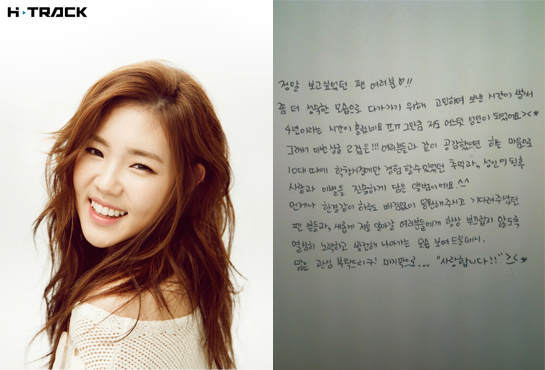 H·TRACK
정말 보고싶었던 팬 여러분♡!!
좀 더 성숙한 모습으로 다가가기 위해 고민하며 보낸 시간이 벌써
4년이라는 시간이 흘렀네요 ㅠㅠ 그만큼 저도 어느덧 성인이 되었어요><*
그래서 이번 싱글 고검은!!! 여러분들과 같이 공감했으면 하는 마음으로
10대 때에 학창시절에만 경험할 수 있었던 추억과, 성인이 된 후
사랑과 이별을 진솔하게 담은 앨범이에요^^
언제나 한결같이 하루도 빠짐없이 응원해주시고 기다려주셨던
팬 분들과, 새롭게 저를 알아갈 여러분들에게 항상 부끄럽지 않도록
열심히 노력하고 발전해 나아가는 모습 보여 드릴게요.
많은 관심 부탁드리구! 마지막으로... "사랑합니다!!" >_<*